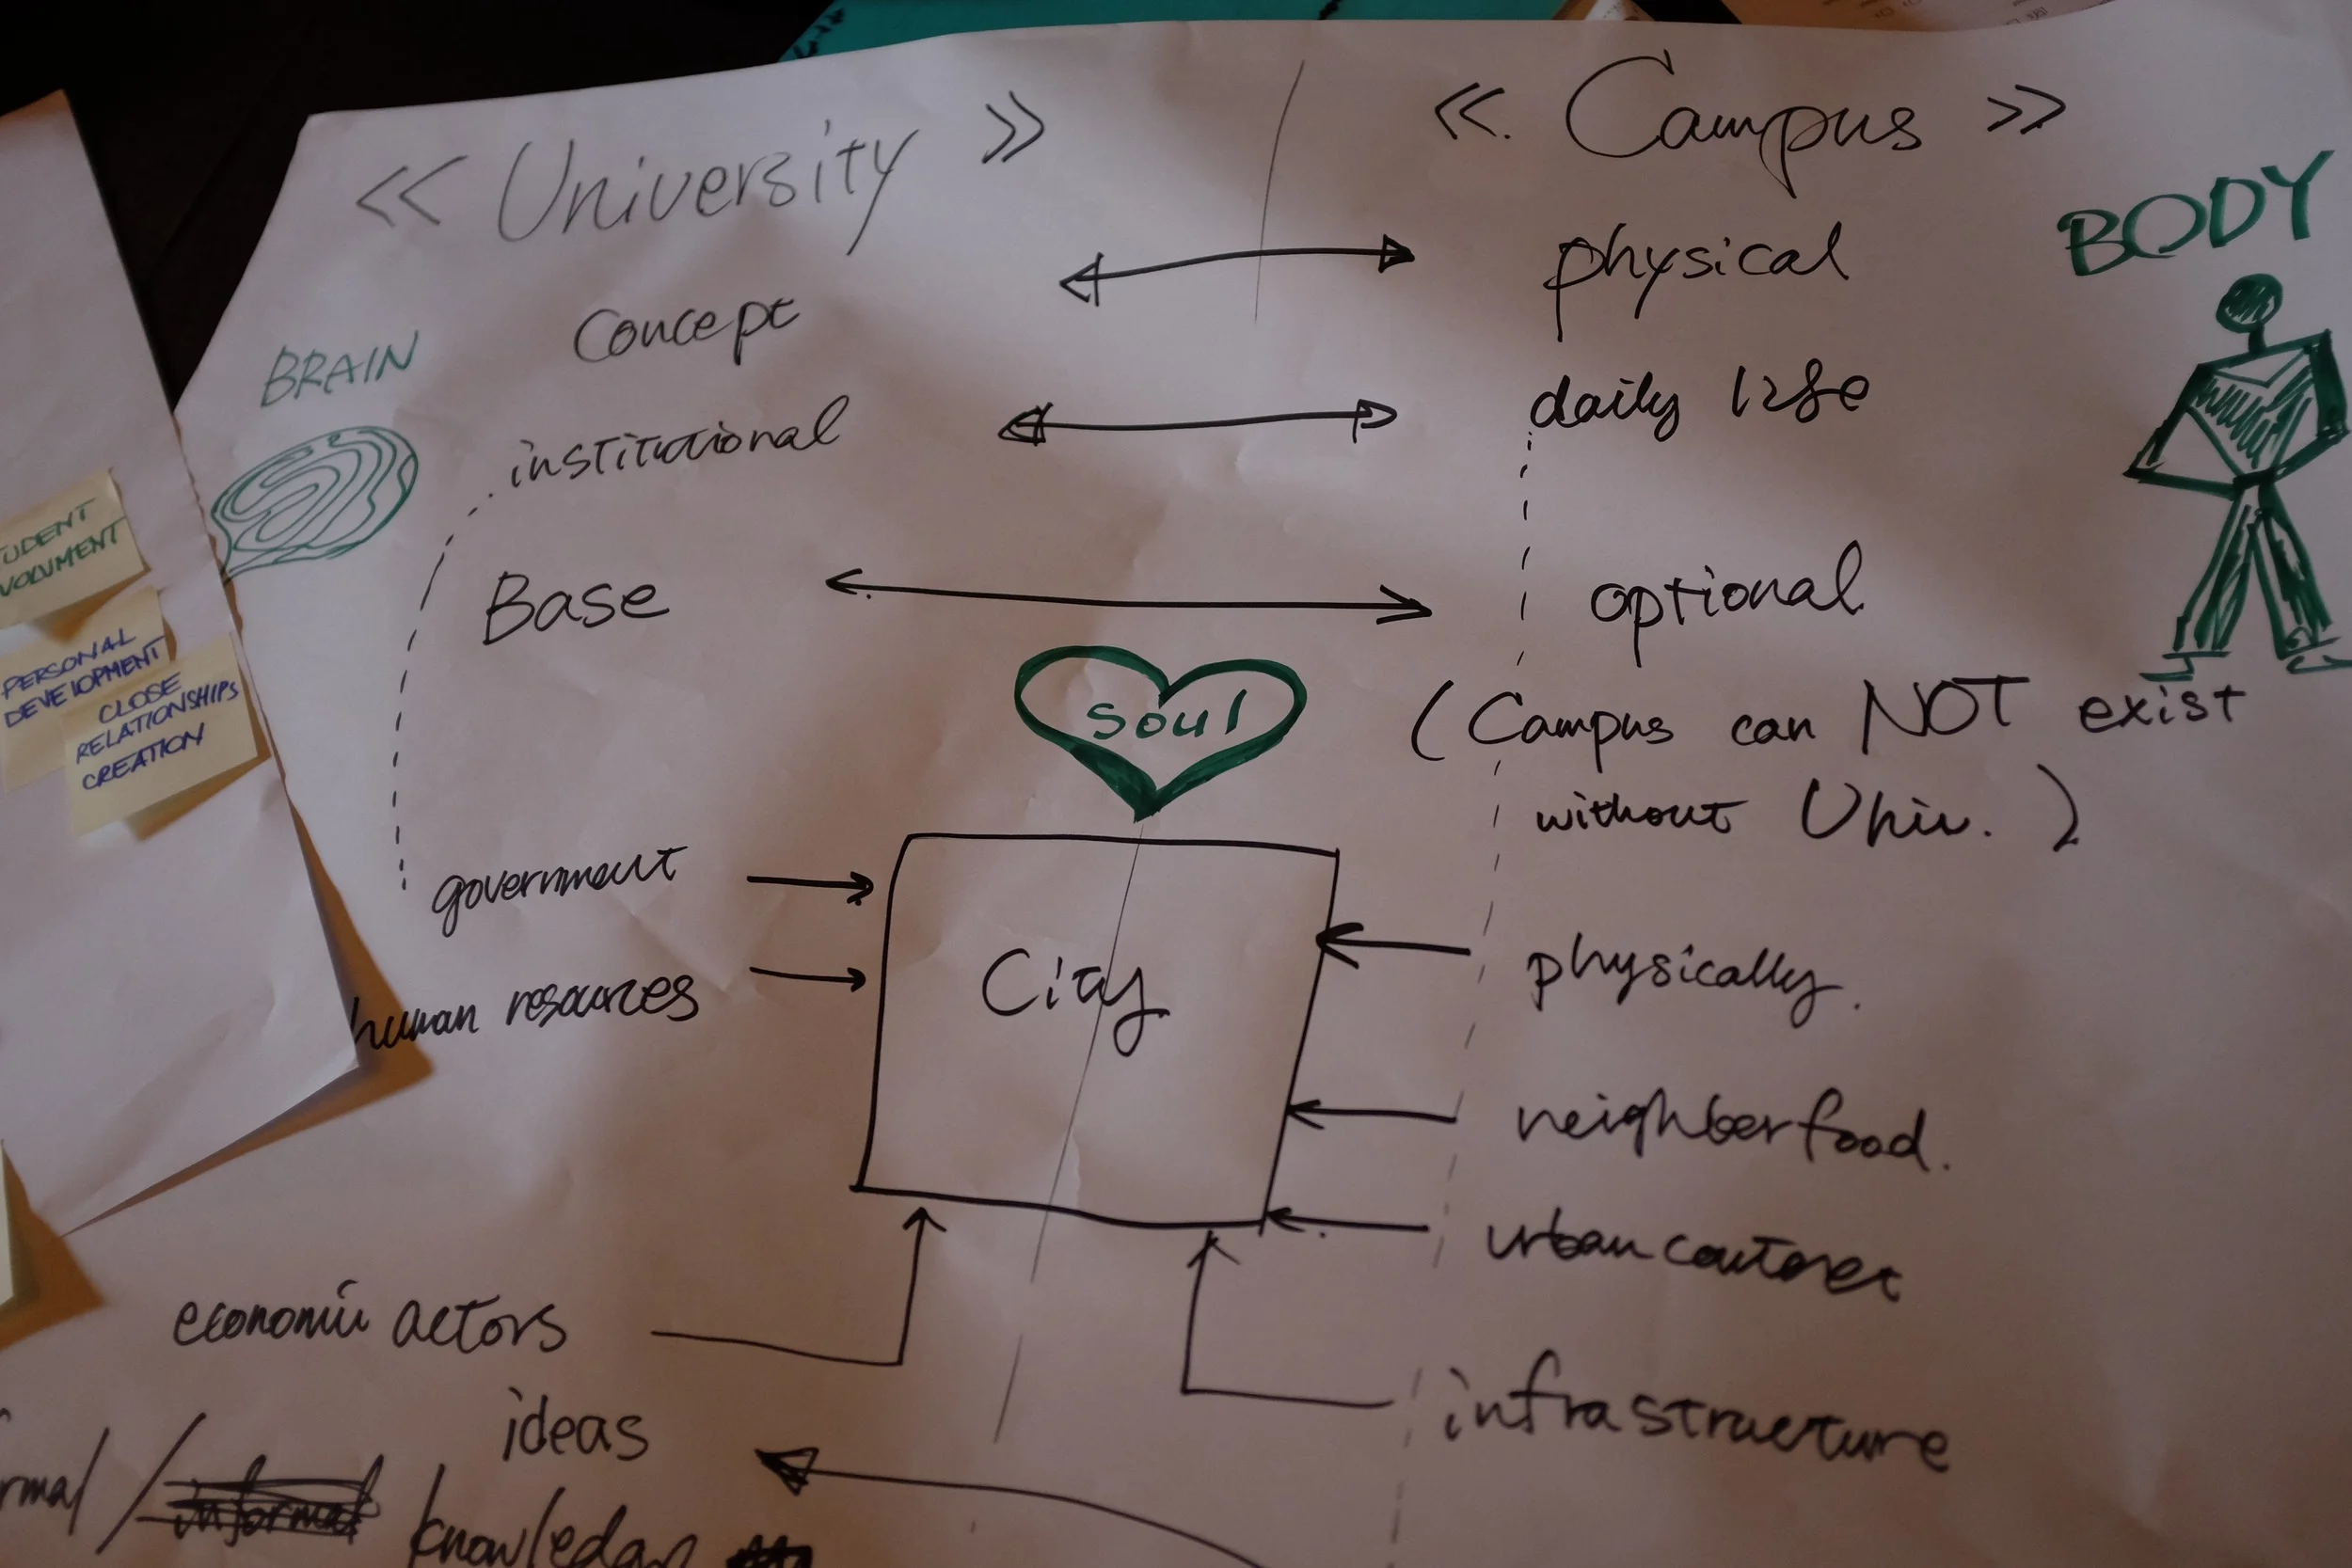 « University »
« Campus »
BODY
Concept
physical
BRAIN
institutional
daily life
Base
optional
soul
(Campus can NOT exist
without Univ.)
government
human resources
City
physically.
neighberfood.
urban
economic actors
infrastructure
ideas
informal
UDENT
VOLUMENT
PERSONAL
DEVELOPMENT
CLOSE
RELATIONSHIPS
CREATION